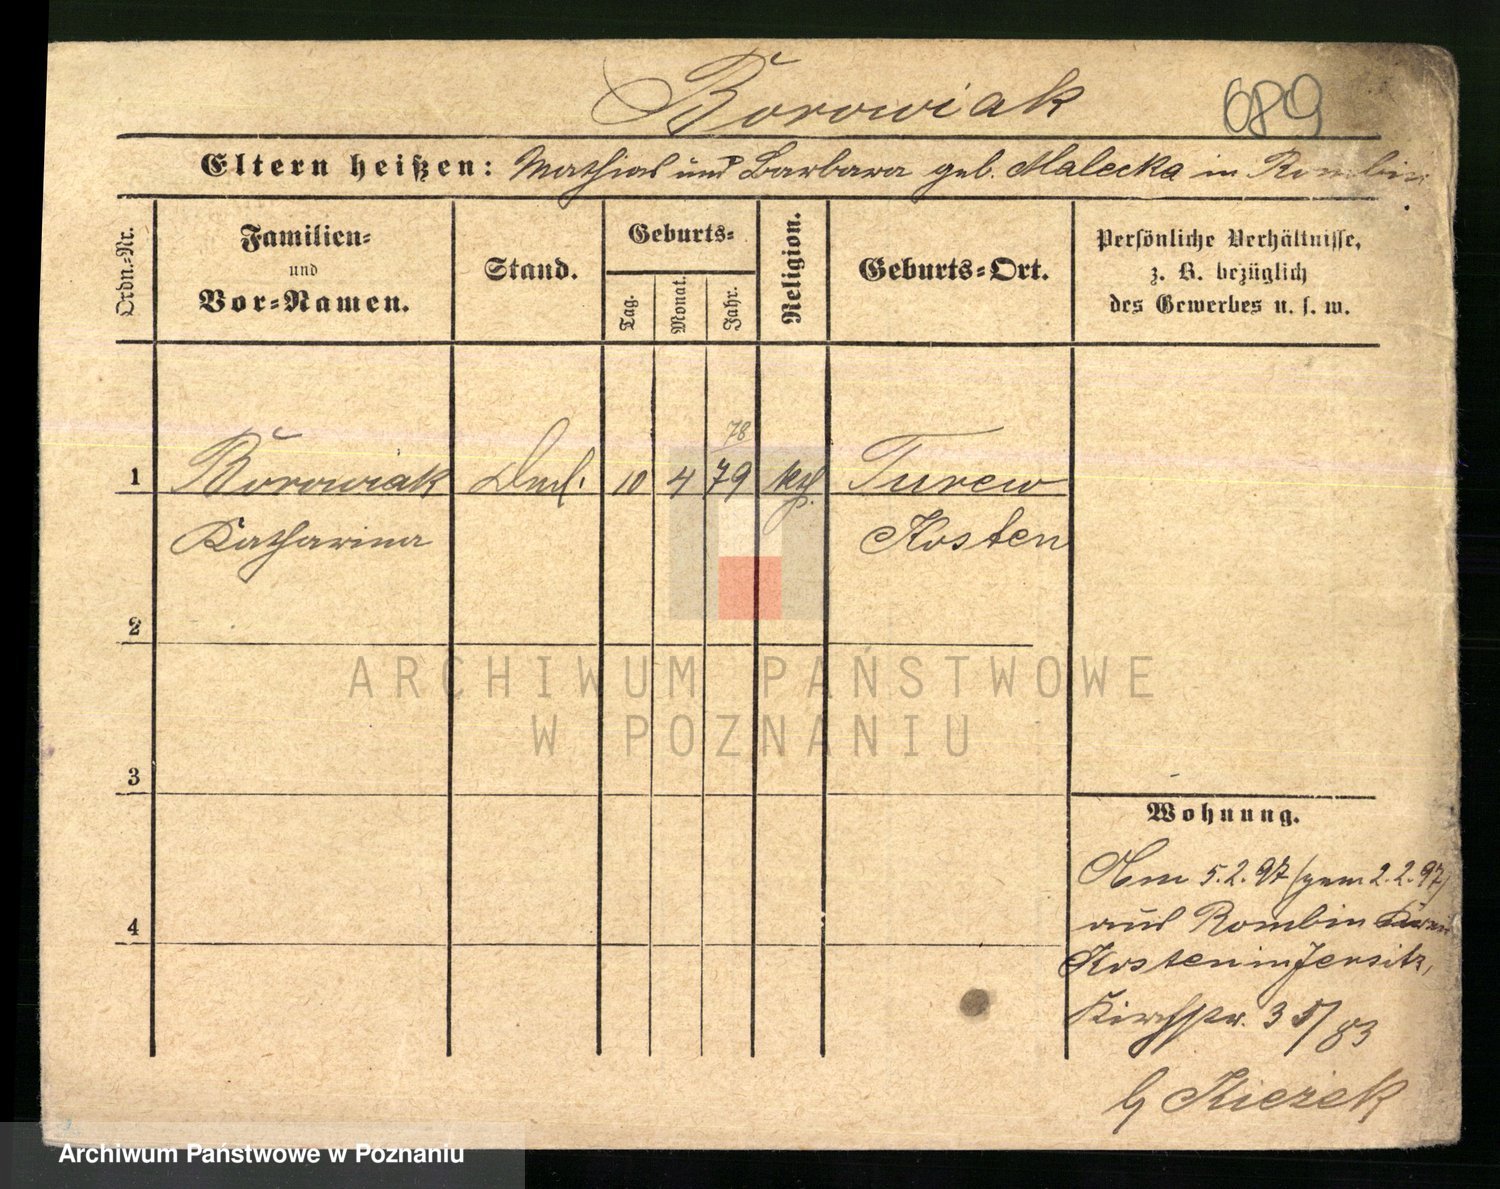 Borowiak 689
Eltern heißen: Mathias und Barbara geb. Malecka in Rombin
Ordn.-Nr.
Familien-
und
Vor-Namen.
Stand.
Geburts-
Tag.
Monat.
Jahr.
Religion.
Geburts-Ort.
Persönliche Verhältnisse,
z. B. bezüglich
des Gewerbes u. s. w.
78
1 Borowiak 10 4 79 kth. Turew
Katharina Kosten
2
3
4
Wohnung.
Am 5.2.97 (gem. 2.2.97)
aus Rombin Kreis
Kosten in Jersitz,
Kirchstr. 35/83
b Kiezek
ARCHIWUM PAŃSTWOWE
W POZNANIU
Archiwum Państwowe w Poznaniu